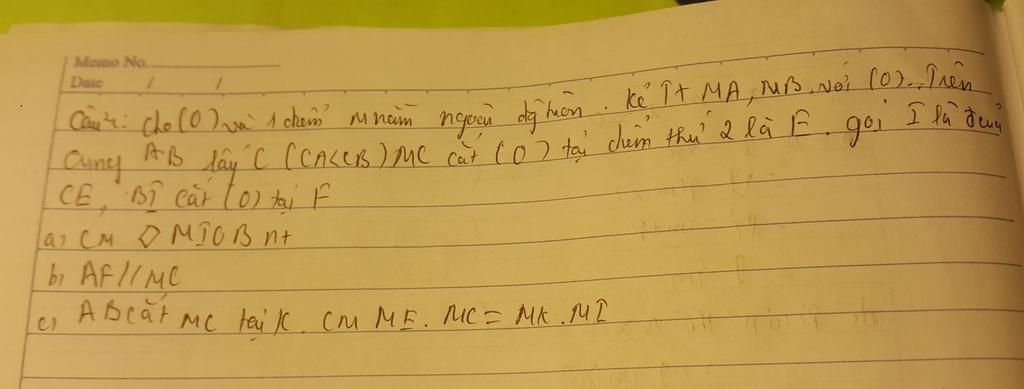 Memo No.
Date / /
Câu 4: cho (O) và 1 điểm M nằm ngoài đg tròn. kẻ T+ MA, MB với (O). Trên
cung AB lấy C (CA<CB) MC cắt (O) tại điểm thứ 2 là E. gọi I là
CE, BI cắt (O) tại F
a) CM ◇ MIOB nt
b) AF // MC
c) AB cắt MC tại K. CM ME. MC = MK. MI